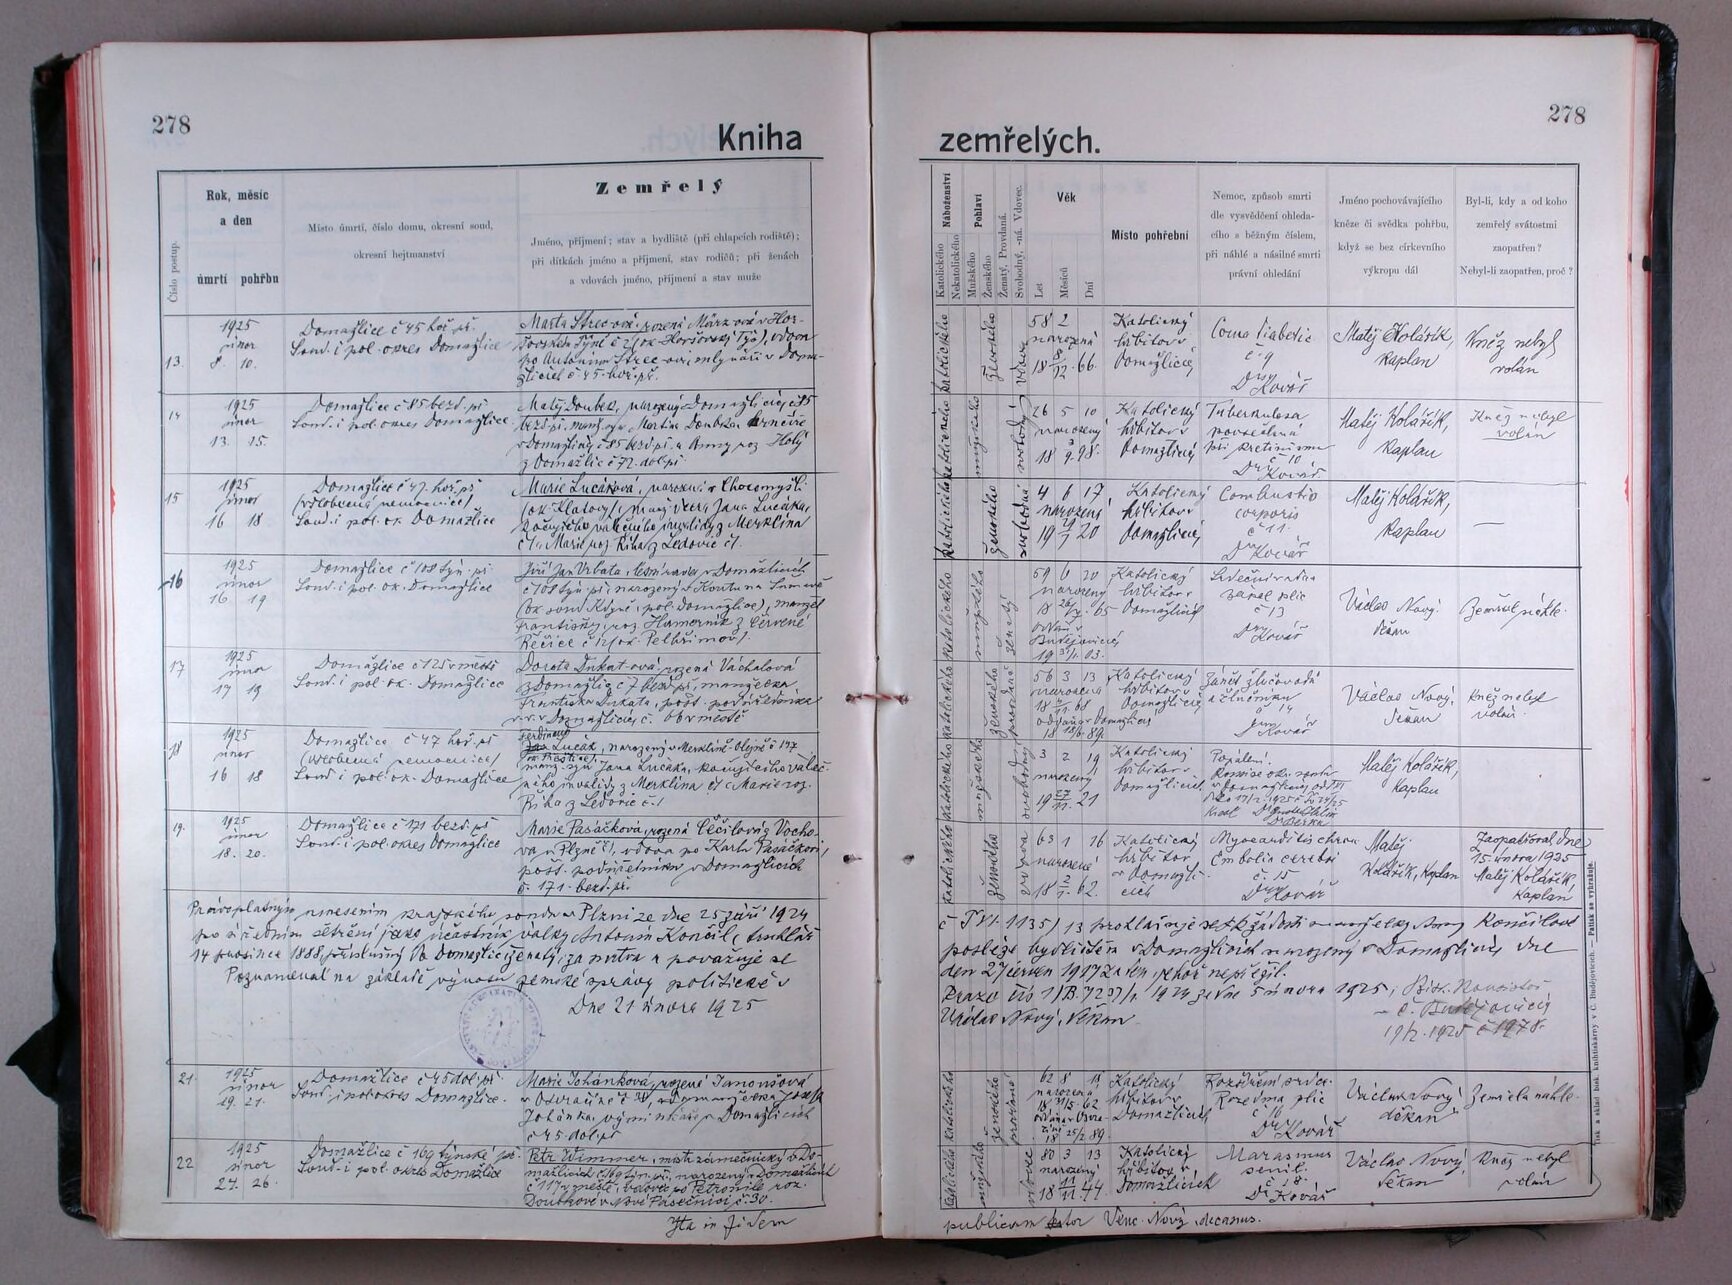 278
278
Kniha
zemřelých.
Číslo postup.
Rok, měsíc
a den
úmrtí
pohřbu
Místo úmrtí, číslo domu, okresní soud,
okresní hejtmanství
Zemřelý
Jméno, příjmení; stav a bydliště (při chlapcích rodiště);
při dítkách jméno a příjmení, stav rodičů; při ženách
a vdovách jméno, příjmení a stav muže
Náboženství
Katolického
Nekatolického
Pohlaví
Mužského
Ženského
Ženatý, Provdaná.
Svobodný, -ná. Vdovec.
Věk
Let
Měsíců
Dní
Místo pohřební
Nemoc, způsob smrti
dle vysvědčení ohleda-
cího a běžným číslem,
při náhlé a násilné smrti
právní ohledání
Jméno pochovávajícího
kněze či svědka pohřbu,
když se bez církevního
výkropu dál
Byl-li, kdy a od koho
zemřelý svátostmi
zaopatřen?
Nebyl-li zaopatřen, proč?
13.
1925
únor
8. 10.
Domažlice č 45 hoř. př.
Soud. i pol. okres Domažlice
Marta Strecová, rozená
po Antonínu Strec-ovi, mlynáři v Doma-
žlicích č. 45. hoř. př.
katolického
ženského
vdova
58 2
narozená
18 8/12 66.
Katolický
hřbitov v
Domažlicích
Coma diabetic
č 9
Dr Kovář
Matěj Kolářík,
kaplan
Kněz nebyl
volán
14
1925
únor
13. 15.
Domažlice č 85 bezd. př.
Soud. i pol. okres Domažlice
Matěj Doubek, narozený v Domažlicích č 85
v Domažlicích č 85 bezd. př. a Anny roz. Holý
z Domažlic č 72. dol. př
katolického
mužského
svobodný
26 5 10
narozený
18 3/9 98.
Katolický
hřbitov v
Domažlicích
Tuberkulosa
č 10
Dr Kovář
Matěj Kolářík,
kaplan
Kněz nebyl
volán
15
1925
únor
16 18
Domažlice č 47. hoř. př
(všeobecná nemocnice)
Soud. i pol. ok. Domažlice
Marie Lucáková, narozená v Chocomyšli
(ok. Klatovy), manž. dcera Jana Lucáka,
kočujícího válečného invalidy z Merklína
č 1. a Marie roz. Říha z Ledovic č 1.
katolického
ženského
svobodná
4 6 17
narozená
19 29/7 20
Katolický
hřbitov v
Domažlicích
Combustio
corporis
č 11.
Dr Kovář
Matěj Kolářík,
kaplan
—
16
1925
únor
16. 19
Domažlice č 108 týn. př.
Soud. i pol. ok. Domažlice
Jiří Jan Vrbata, lesní rada v Domažlicích
č 108 týn. př. narozený v Koutu na Šumavě
(ok. soud. Kdyně, pol. Domažlice), manžel
Františky, roz. Hamerník z Červené
Řečice č 12 (ok. Pelhřimov).
katolického
mužského
ženatý
59 6 20
narozený
Katolický
hřbitov v
Domažlicích
Srdeční vada
č 13
Dr Kovář
Václav Nový
děkan
Zemřel náhle.
17
1925
únor
17 19
Domažlice č 125 v městě
Soud. i pol. ok. Domažlice
Dorota Dukat-ová, rozená Váchalová
z Domažlic č 7 bezd. př, manželka
Františka Dukata, pošt. podúředníka
v. v. v Domažlicích č. 66 v městě
katolického
ženského
provdaná
56 3 13
narozená
Katolický
hřbitov v
Domažlicích
Zánět žlučovodů
č 14
Dr Kovář
Václav Nový,
děkan
Kněz nebyl
volán.
18
1925
únor
16 18
Domažlice č 47 hoř. př
(všeobecná nemocnice)
Soud. i pol. ok. Domažlice
Ferdinand
Jan Lucák, narozený v Merklíně
manž. syn Jana Lucáka, kočujícího váleč-
ného invalidy z Merklína č 1 a Marie roz.
Říha z Ledovic č. 1
katolického
mužského
svobodný
3 2 19
narozený
19 27/11. 21
Katolický
hřbitov v
Domažlicích
Popálení.
Matěj Kolářík,
kaplan
19.
1925
únor
18. 20.
Domažlice č 171 bezd. př
Soud. i pol. okres Domažlice
Marie Pasáčková, rozená
va u Plzně č 1, vdova po Karlu Pasáčkovi,
pošt. podúředníku v Domažlicích
č. 171. bezd. př.
katolického
ženského
vdova
63 1 16
narozená
18 2/1. 62.
Katolický
hřbitov
v Domažli-
cích
Myocarditis chron
Embolia cerebri
č. 15
Dr Kovář
Matěj
Kolářík, kaplan
Zaopatřoval dne
15. února 1925
Matěj Kolářík,
kaplan
Právoplatným usnesením krajského soudu v Plzni ze dne 25 září 1924
po šetření jako účastník války Antonín Končil, truhlář
14 prosince 1888, příslušný do Domažlic, ženatý, za mrtva a považuje se
Poznamenal na základě výnosu zemské správy politické v
Dne 21 února 1925
č. Tvi. 1135/13 prohlašuje se k žádosti manželky Anny Končilové
posléze bydlištěm v Domažlicích narozený v Domažlicích dne
den 27 června 1917 za den, jehož nepřežil.
Praze číslo 1/B. 7237/1 1924 ze dne 5 února 1925, Bisk. Konsistoř
Václav Nový, děkan
v Č. Budějovicích
19/2. 1925 č 1978.
21.
1925
únor
19. 21.
Domažlice č 45 dol. př
Soud. i pol. okres Domažlice.
Marie Johánková, rozená Janoušová
č 45 dol. př
katolického
ženského
62 8
narozená
Katolický
hřbitov v
Domažlicích
Rozšíření srdce.
Rozedma plic
č 16
Dr Kovář
Václav Nový
děkan
Zemřela náhle.
22
1925
únor
24. 26.
Domažlice č 169 týnské př.
Soud. i pol. okres Domažlice
Petr Wimmer, mistr zámečnický v Do-
mažlicích č 169 týn. př., narozený v Domažlicích
č 117 v městě, vdovec po Petronile roz.
katolického
mužského
vdovec
80 3 13
narozený
18 11/11. 44.
Katolický
hřbitov v
Domažlicích
Marasmus
senil.
č 18.
Dr Kovář
Václav Nový,
děkan
Kněz nebyl
volán
Ita in fidem
publicam Venc. Nový, decanus.
Tisk a sklad bisk. knihtiskárny v Č. Budějovicích. — Patisk se vyhrazuje.